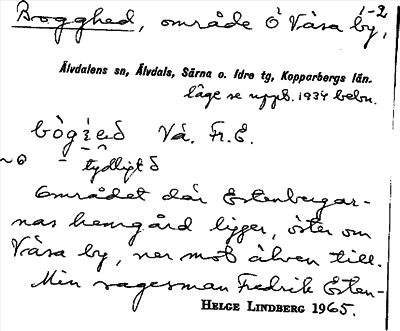 1-2
Brogghed, område Ö Våsa by,
Älvdalens sn, Älvdals, Särna o. Idre tg, Kopparbergs län.
läge se uppt. 1934 bebu.
Vå. Fr. E.
~ō
tydligt ō
Området där Estenbergar-
nas hemgård ligger, öster om
Våsa by, ner mot älven till.
Min sagesman Fredrik Esten-
HELGE LINDBERG 1965.